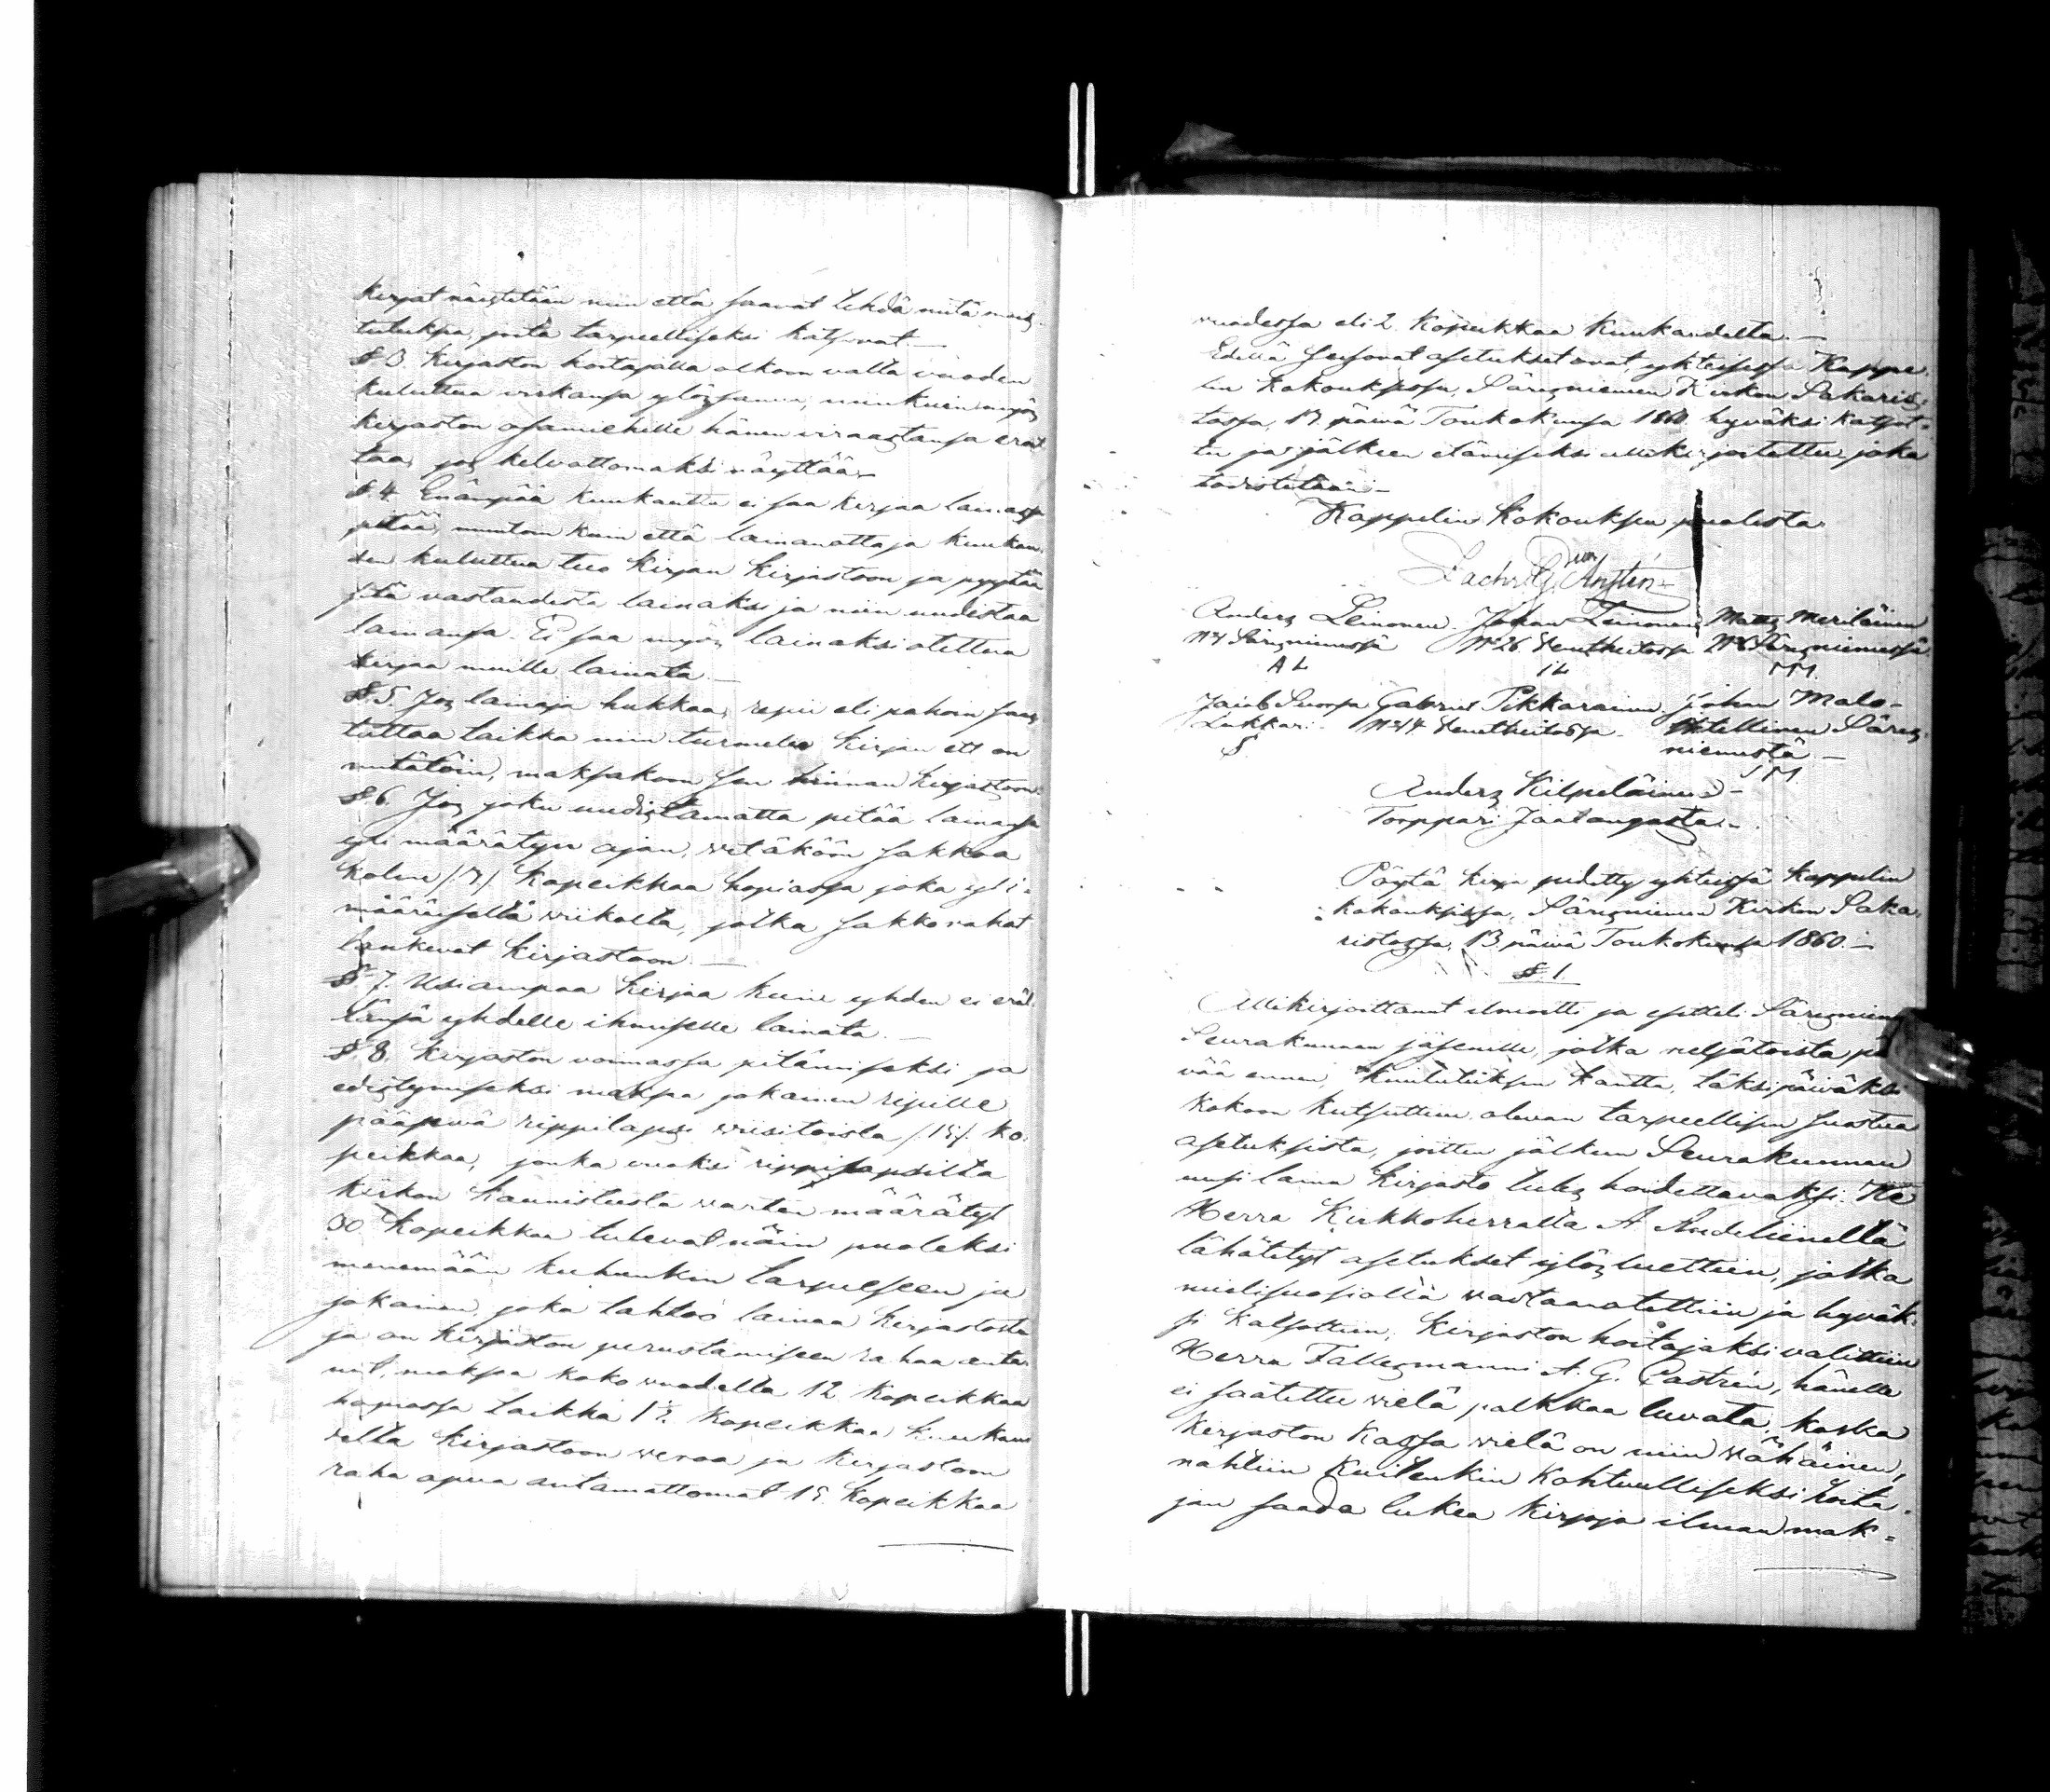 kirjat näytetään niin että saavat tehdä mitä muis-
tutuksia, joita tarpeelliseksi katsovat.
§ 3. Kirjaston hoitajalla olkoon valta vuoden
kuluttua virkansa ylössanoa, niinkuin myös
kirjaston osamiehille hänen viraastansa eroit-
taa, jos kelvottomaksi näyttää.
§ 4. Enämpää kuukautta ei saa kirjaa lainassa
pitää, muutoin kuin että lainanottaja kuukau-
den kuluttua tuo kirjan kirjastoon ja pyytää
sitä vastaudesta lainaksi ja niin uudistaa
lainansa. Ei saa myös lainaksi otettua
kirjaa muille lainata.
§. 5. Jos lainaja hukkaa, repii eli pahoin saas
tuttaa taikka niin turmelee kirjan ett on
mitätöin, maksakoon sen hinnan kirjastoon.
§. 6. Jos joku uudistamatta pitää lainansa
yli määrätyn ajan, vetäköön sakkoa
kolme /:3:/ kopeikkaa hopiassa joka yli-
määräiseltä wiikolta, jotka sakko rahat
lankevat kirjastoon.
§. 7. Usiampaa kirjaa kuin yhden ei eräl-
länsä yhdelle ihmiselle lainata.
§. 8. Kirjaston voimassa pitämiseksi ja
edistymiseksi maksaa jokainen ripille
pääsevä rippilapsi wiisitoista /:15:/ ko-
peikkaa, jonka vuoksi rippilapsilta
kirkon kaunistusta warten määrätyt
30 kopeikkaa tulevat näin puoleksi
menemään kuhunkin tarpeeseen ja
jokainen, joka tahtoo lainaa kirjastosta
ja on kirjaston perustamiseen rahaa anta-
nut, maksaa koko vuodelta 12 kopeikkaa
hopiassa taikka 1½ kopeikkaa kuukau-
delta kirjastoon veroa ja kirjastoon
raha apua antamattomat 15 kopeikkaa
vuodessa eli 2 kopeikkaa kuukaudelta.
Edellä seisovat asetukset ovat, yhteisessä Kappe-
lin kokouksessa, Säräisniemen Kirkon Sakaris-
tossa, 13 päivä Toukokuussa 1860 hyväksi katsot-
tu ja jälkeen elämiseksi allekirjoitettu, joka
todistetaan.
Kappelin kokouksen puolesta
Anders Leinonen. Johan Leinonen Matts Meriläinen
N:4 Säräisniemessä N:26 N:6 Säräisniemessä
A L I L M M.
Jacob Gabriel Pikkarainen. Johan Malo-
Lukkari. N:14 Itellinen Säräis-
S niemestä
J M
Anders Kilpeläinen
Torppari Jaalangasta.
Pöytä kirja pidetty yhteisessä kappelin
kokouksessa, Säräisniemen Kirkon Saka-
ristossa, 13 päivä Toukokuussa 1860.
§. 1.
Allekirjoittanut ilmoitti ja esitteli Säräisniemen
Seurakunnan jäsenille, jotka neljätoista päi-
vää ennen, kuulutuksen kautta, täksi päiväksi
kokoon kutsuttiin olevan tarpeellisen suostua
asetuksista, joitten jälkeen Seurakunnan
uusi laina kirjasto tulee hoidettavaksi. Ne
Herra Kirkkoherralta A Andelinilta
lähätetyt asetukset ylösluettiin, jotka
mielisuosiolla vastaanotettiin ja hyväk-
si katsottiin. Kirjaston hoitajaksi valittiin
Herra A. G. Castrén, hänelle
ei saatettu vielä palkkaa luvata, koska
kirjaston kassa vielä on niin vähäinen,
nähtiin kuitenkin kohtuulliseksi hoita-
jan saada lukea kirjoja ilman mak-